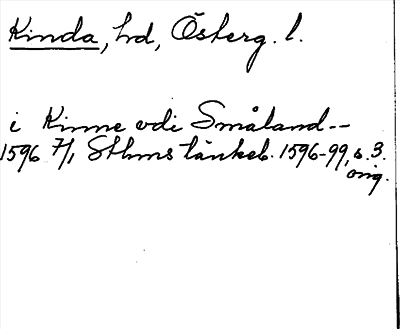 Kinda, hd, Österg. l.
i Kinne vdi Småland--
1596 7/1 Sthms tänkeb. 1596-99, s. 3.
orig.